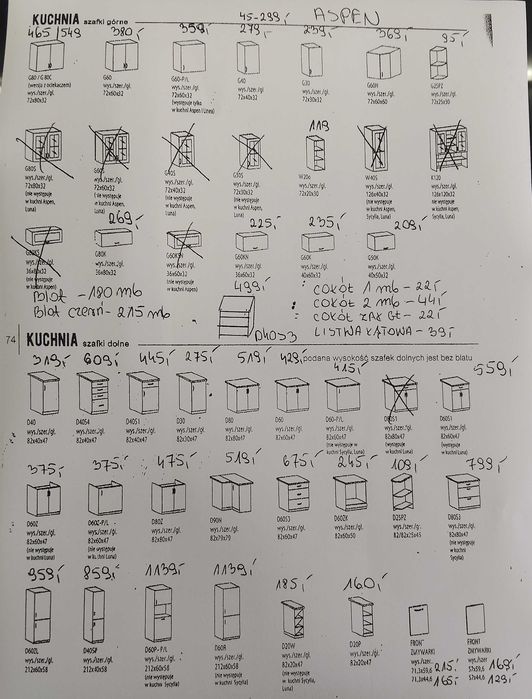 KUCHNIA szafki górne 45-299,- ASPEN
465/549 380,- 359,- 279,- 239,- 369,- 95,-
G80 / G 80C G60 G60-P/L G40 G30 G60N G25PZ
(wersja z ociekaczem) wys./szer./gł. wys./szer./gł. wys./szer./gł. wys./szer./gł. wys./szer./gł. wys./szer./gł.
wys./szer./gł. 72x60x32 72x60x32 72x40x32 72x30x32 72x60x60 72x25x30
72x80x32 (występuje tylko
w kuchni Aspen i Linea)
119
G80S G60S G40S G30S W20o W40S K120
wys./szer./gł. wys./szer./gł. wys./szer./gł. wys./szer./gł. wys./szer./gł. wys./szer./gł. wys./szer./gł.
72x80x32 72x60x32 72x40x32 72x30x32 72x20x30 126x40x32 126x120x32
(nie występuje (nie występuje (nie występuje (nie występuje (nie występuje (nie występuje
w kuchni Aspen, w kuchni Aspen, w kuchni Aspen, w kuchni Aspen, w kuchni Aspen, w kuchni Aspen,
Luna) Luna) Luna) Luna) Sycylia, Luna) Sycylia, Luna)
269,- 225,- 235,- 209,-
G80KS G80K G60KSN G60KN G60K G50K
wys./szer./gł. wys./szer./gł. wys./szer./gł. wys./szer./gł. wys./szer./gł. wys./szer./gł.
36x80x32 36x80x32 36x60x32 36x60x32 40x60x32 40x50x32
(nie występuje (nie występuje
w kuchni Aspen) w kuchni Aspen)
499,-
Blat - 180 mb
Blat czarn- 215 mb
D40S3
: COKÓŁ 1 mb - 22,-
: COKÓŁ 2 mb - 44,-
: COKÓŁ ZAK GŁ - 22,-
LISTWA KĄTOWA - 39,-
74 KUCHNIA szafki dolne
podana wysokość szafek dolnych jest bez blatu
319,- 609,- 445,- 275,- 519,- 429,- 415,- 559,-
D40 D40S4 D40S1 D30 D80 D60 D60-P/L D80S1 D60S1
wys./szer./gł. wys./szer./gł. wys./szer./gł. wys./szer./gł. wys./szer./gł. wys./szer./gł. wys./szer./gł. wys./szer./gł. wys./szer./gł.
82x40x47 82x40x47 82x40x47 82x30x47 82x80x47 82x60x47 82x60x47 82x80x47 82x60x47
(nie występuje (nie występuje (nie występuje
w kuchni Sycylia, Luna) w kuchni w kuchni Luna)
375,- 375,- 475,- 519,- 675,- 245,- 109,- 799,-
D60Z D60Z-P/L D80Z D90N D60S3 D60ZK D25PZ D80S3
wys./szer./gł. wys./szer./gł. wys./szer./gł. wys./szer./gł. wys./szer./gł. wys./szer./gł. wys./szer./gł. wys./szer./gł.
82x60x47 82x60x47 82x80x47 82x79x79 82x60x47 82x60x50 82/82x25x45 82x80x47
(nie występuje (nie występuje (nie występuje
w kuchni Luna) w kuchni Luna) w kuchni
Sycylia)
959,- 859,- 1139,- 1139,- 185,- 160,-
D60ZL D40SP D60P-P/L D60R D20W D20P FRONT FRONT
wys./szer./gł. wys./szer./gł. wys./szer./gł. wys./szer./gł. wys./szer./gł. wys./szer./gł. ZMYWARKI ZMYWARKI
212x60x58 212x40x58 212x60x58 212x60x58 82x20x47 82x20x47 wys./szer. 215,- wys./szer. 169,-
(nie występuje (nie występuje (nie występuje 71,3x59,6 57x59,6
w kuchni Sycylia) w kuchni Sycylia) w kuchni Sycylia, 71,3x44,6 165,- 57x44,6 129,-
Luna)